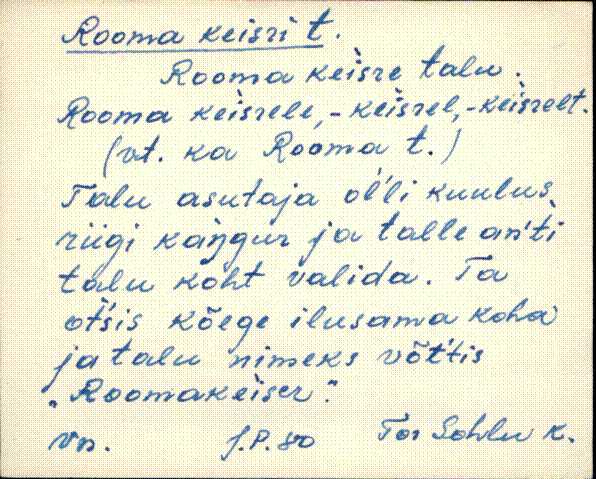 Rooma keisri t.
Rooma keìsre talu.
Rooma keìsrele, -keìsrel, -keìsrelt.
(vt. ka Rooma t.)
Talu asutaja ol'li kuulus,
riigi kaŋgur ja talle an'ti
talu koht valida. Ta
ot̀'sis kõege ilusama koha
ja talu nimeks võt't́is
„Roomakeìser".
Vn. J.P. 80 Tor Sohlu k.